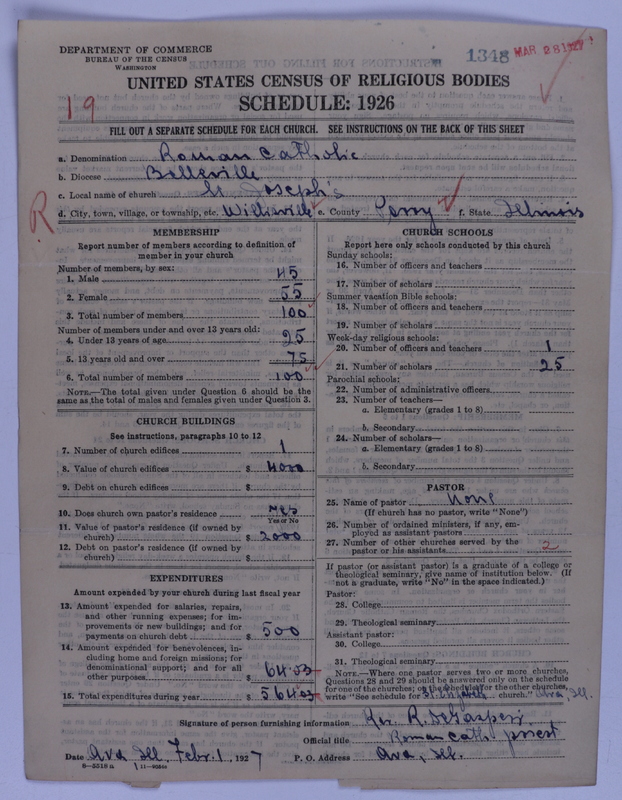 DEPARTMENT OF COMMERCE
BUREAU OF THE CENSUS
WASHINGTON
1348 MAR 28 1927
UNITED STATES CENSUS OF RELIGIOUS BODIES
19
SCHEDULE: 1926
FILL OUT A SEPARATE SCHEDULE FOR EACH CHURCH. SEE INSTRUCTIONS ON THE BACK OF THIS SHEET
a. Denomination Roman Catholic
b. Diocese Belleville
c. Local name of church St Joseph's
R
d. City, town, village, or township, etc. Willisville e. County Perry f. State Illinois
MEMBERSHIP
Report number of members according to definition of
member in your church
Number of members, by sex:
1. Male 45
2. Female 55
3. Total number of members 100
Number of members under and over 13 years old:
4. Under 13 years of age 25
5. 13 years old and over 75
6. Total number of members 100
NOTE.—The total given under Question 6 should be the
same as the total of males and females given under Question 3.
CHURCH BUILDINGS
See instructions, paragraphs 10 to 12
7. Number of church edifices 1
8. Value of church edifices $ 4000
9. Debt on church edifices $
10. Does church own pastor's residence yes
Yes or No
11. Value of pastor's residence (if owned by
church) $ 2000
12. Debt on pastor's residence (if owned by
church) $
EXPENDITURES
Amount expended by your church during last fiscal year
13. Amount expended for salaries, repairs,
and other running expenses; for im-
provements or new buildings; and for
payments on church debt $ 500
14. Amount expended for benevolences, in-
cluding home and foreign missions; for
denominational support; and for all
other purposes $ 64.03
15. Total expenditures during year $ 564.03
CHURCH SCHOOLS
Report here only schools conducted by this church
Sunday schools:
16. Number of officers and teachers
17. Number of scholars
Summer vacation Bible schools:
18. Number of officers and teachers
19. Number of scholars
Week-day religious schools:
20. Number of officers and teachers 1
21. Number of scholars 25
Parochial schools:
22. Number of administrative officers
23. Number of teachers—
a. Elementary (grades 1 to 8)
b. Secondary
24. Number of scholars—
a. Elementary (grades 1 to 8)
b. Secondary
PASTOR
25. Name of pastor None
(If church has no pastor, write "None")
26. Number of ordained ministers, if any, em-
ployed as assistant pastors
27. Number of other churches served by the
pastor or his assistants 2
If pastor (or assistant pastor) is a graduate of a college or
theological seminary, give name of institution below. (If
not a graduate, write "No" in the space indicated.)
Pastor:
28. College
29. Theological seminary
Assistant pastor:
30. College
31. Theological seminary
NOTE.—Where one pastor serves two or more churches,
Questions 28 and 29 should be answered only on the schedule
for one of the churches; on the schedule for the other churches,
write "See schedule for St. Elizabeth church." Ava, Ill.
Signature of person furnishing information Rev. R. DeGasperi
Official title Roman Cath priest
Date Ava, Ill. Febr. 1, 1927 P. O. Address Ava, Ill.